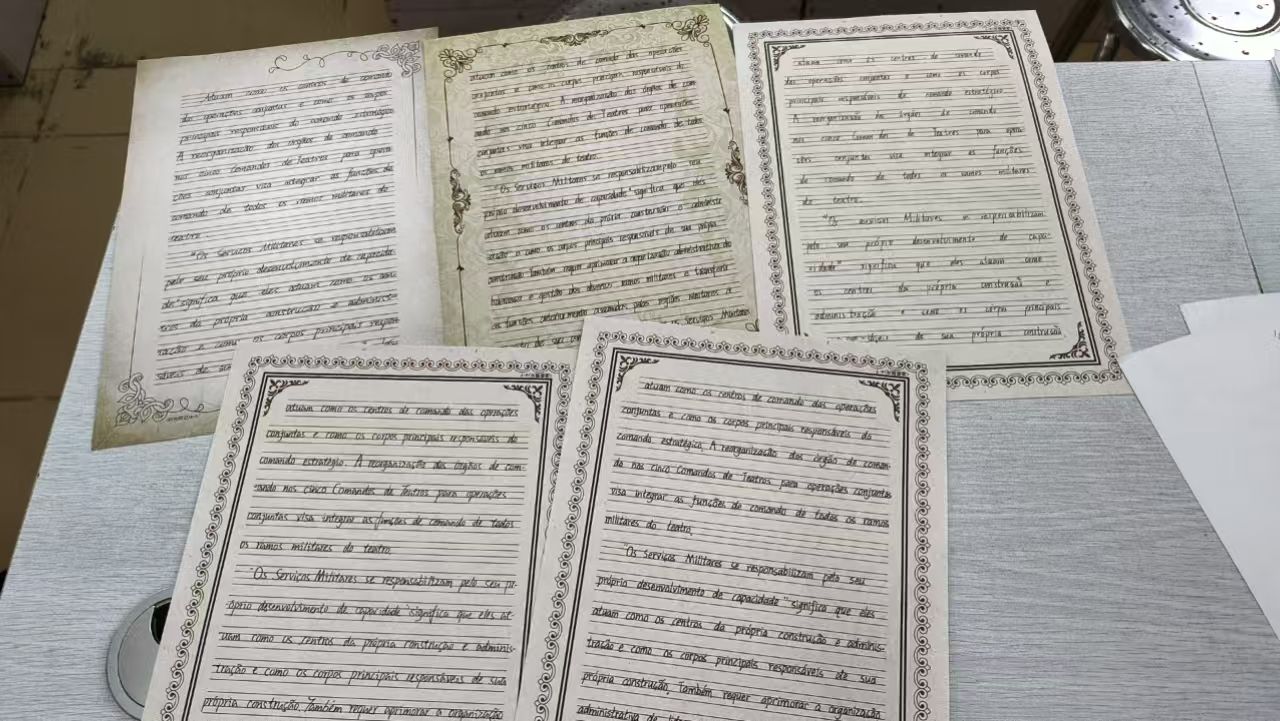 Atuam como os centros de comando
das operações conjuntas e como os corpos
principais responsáveis do comando estratégico
A reorganização dos órgãos de comando
nos cinco Comandos de Teatros para opera
ções conjuntas visa integrar as funções de
comando de todos os ramos militares de
teatro.
"Os Serviços Militares se responsabilizam
pelo seu próprio desenvolvimento de capacida
de" significa que eles atuam como os cen
tros da própria construção e adminis-
tração e como os corpos principais respon
atuam como os centros de comando das operações
conjuntas e como os corpos principais responsáveis do
comando estratégico. A reorganização dos órgãos de com-
ando nos cinco Comandos de Teatros para operações
conjuntas visa integrar as funções de comando de todos
os ramos militares do teatro.
"Os Serviços Militares se responsabilizam pelo seu
próprio desenvolvimento de capacidade" significa que eles
atuam como os centros da própria construção e administr
ação e como os corpos principais responsáveis de sua própria
construção. Também requer aprimorar a organização administrativa de
liderança e gestão dos diversos ramos militares e transferir
as funções assumidas pelas regiões militares
os Serviços Militares
atuam como os centros de comando
das operações conjuntas e como os corpos
principais responsáveis do comando estratégico
A reorganização dos órgãos de comando
nos cinco Comandos de Teatros para opera
ções conjuntas visa integrar as funções
de comando de todos os ramos militares
de teatro.
"Os Militares se responsabilizam
pelo seu próprio desenvolvimento de capa-
cidade" significa que eles atuam como
os centros da própria construção e
administração e como os corpos principais
de sua própria construção
atuam como os centros de comando das operações
conjuntas e como os corpos principais responsáveis do
comando estratégio. A reorganização dos órgãos de com-
ando nos cinco Comandos de Teatros para operações
conjuntas visa integrar as funções de comando de todos
os ramos militares do teatro.
"Os Serviços Militares se responsabilizam pelo seu pr-
óprio desenvolvimento de capacidade" significa que eles at-
uam como os centros da própria construção e adminis-
tração e como os corpos principais responsáveis de sua
própria construção. Também requer aprimorar a organização
atuam como os centros de comando das operações
conjuntas e como os corpos principais responsáveis do
comando estratégico. A reorganização dos órgão de coman-
do nos cinco Comandos de Teatros para operações conjuntas
visa integrar as funções do comando de todos os ramos
militares do teatro.
"Os Serviços Militares se responsabilizam pelo seu
próprio desenvolvimento de capacidade" significa que eles
atuam como os centros da própria construção e adminis-
tração e como os corpos principais responsáveis de sua
própria construção. Também requer aprimorar a organização
administrativa de